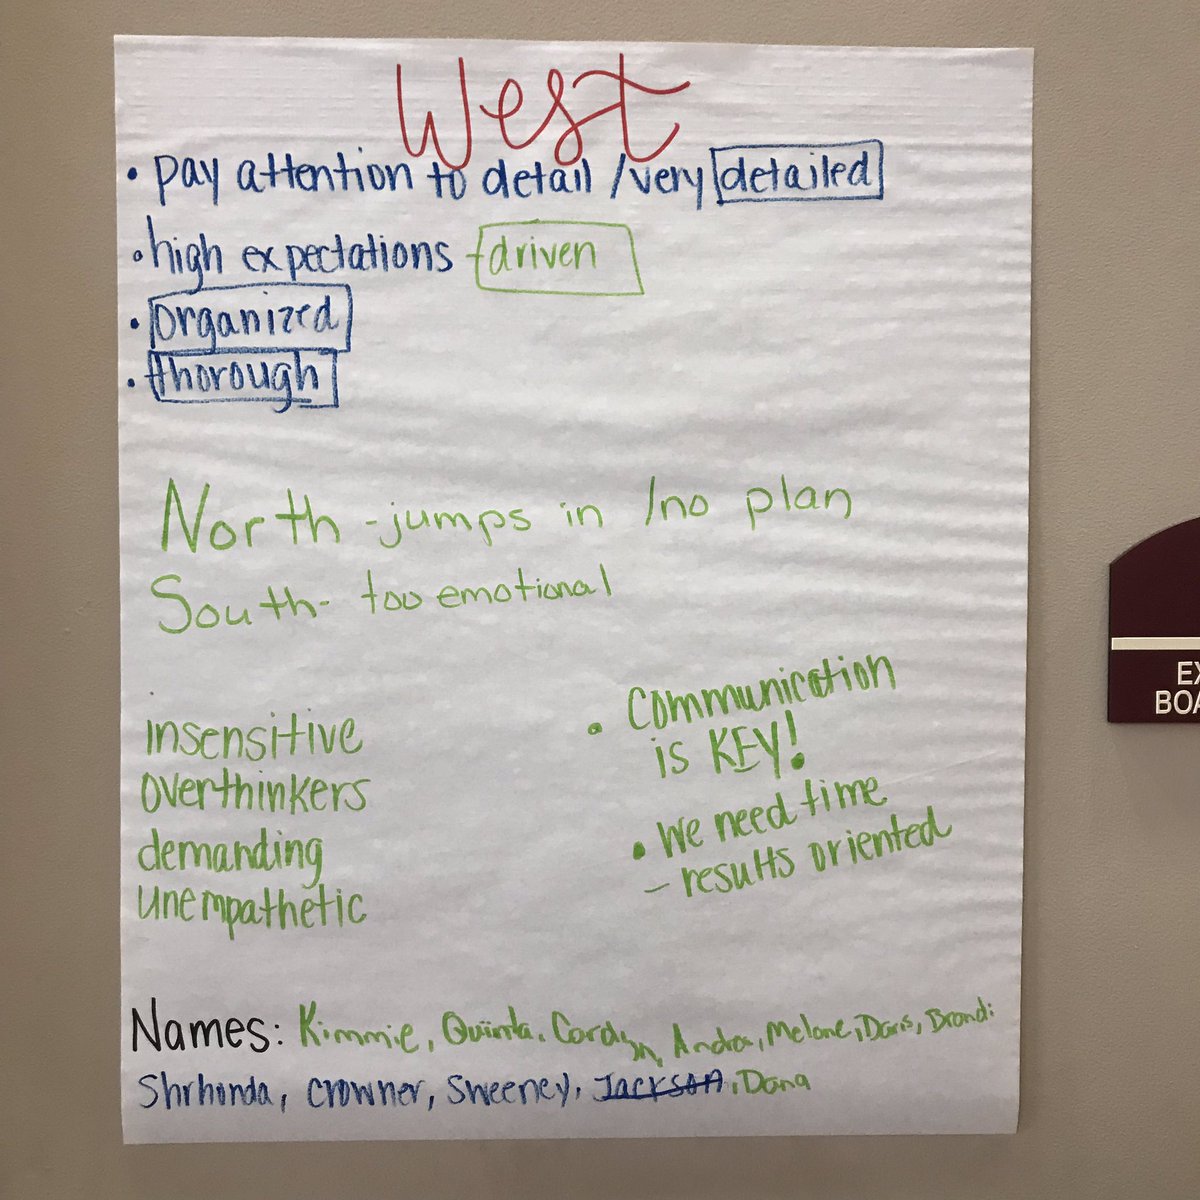 West
• pay attention to detail / very detailed
• high expectations - driven
• organized
• thorough
North - jumps in / no plan
South - too emotional
insensitive
overthinkers
demanding
unempathetic
• Communication
is KEY!
• We need time
- results oriented
EX
BOA
Names: Kimmie, Quinta, Carolyn, Andra, Melanie, Doris, Brandi
Shrhonda, Crowner, Sweeney, Jackson, Dana